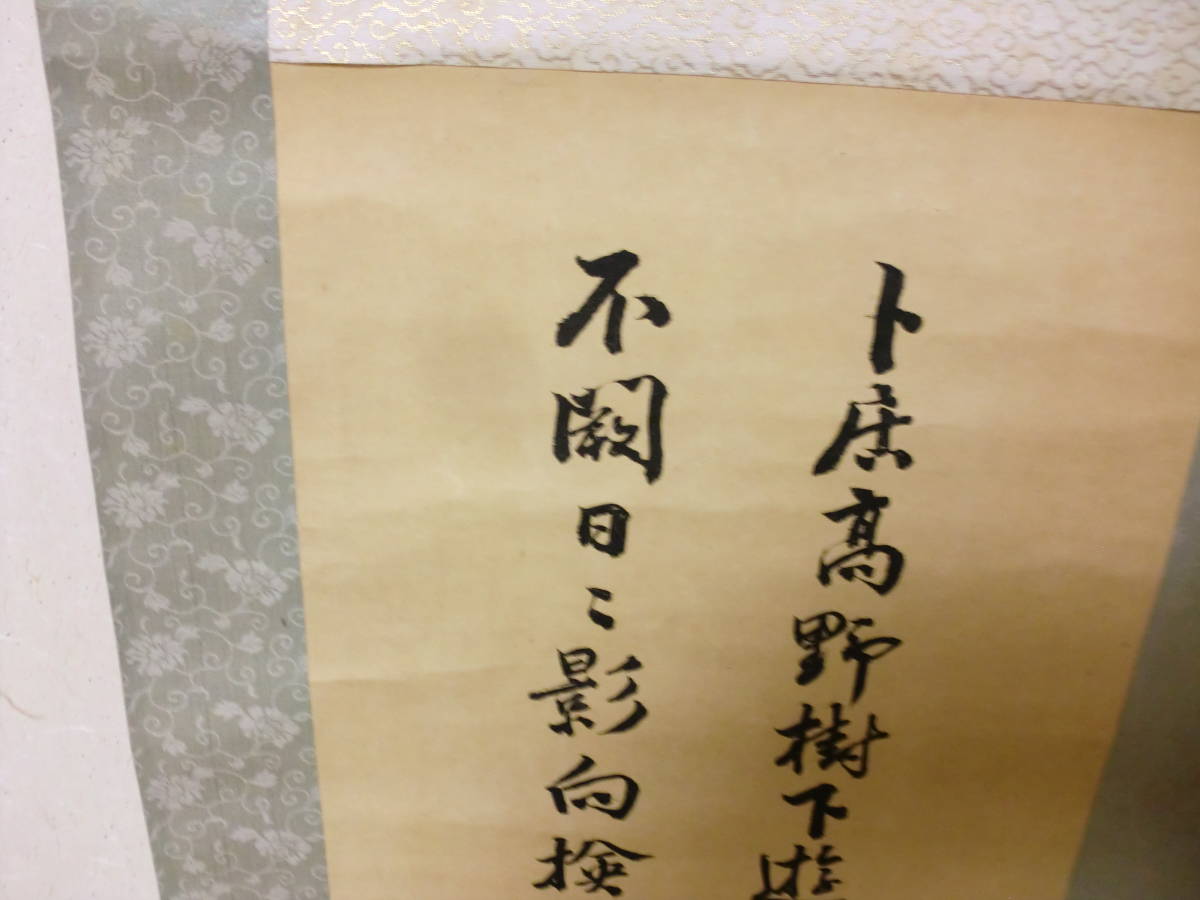 卜居高野樹下遊
不闕日々影向検